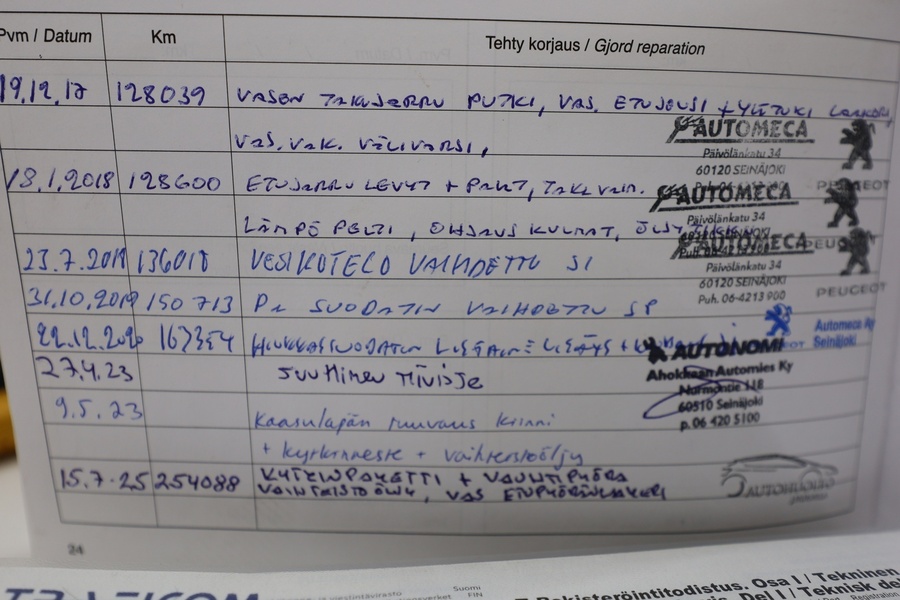 Pvm / Datum Km Tehty korjaus / Gjord reparation
19.12.17 128039 VASEN TAKAJARRU PUTKI, VAS. ETUJOUSI + YLÄTUKI
VAS. VAK. VÄLIVARSI,
AUTOMECA
Päivölänkatu 34
60120 SEINÄJOKI
PEUGEOT
18.1.2018 128600 ETUJARRU LEVYT + PALAT, TAKA
AUTOMECA
Päivölänkatu 34
LÄMPÖ PELTI, OHJAUS KULMAT,
PEUGEOT
23.7.2019 136018 VESIKOTELO VAIHDETTU SI
AUTOMECA
Päivölänkatu 34
60120 SEINÄJOKI
Puh. 06-4213 900
PEUGEOT
31.10.2019 150 713 PA SUODATIN VAIHDETTU SP
22.12.2020 HIUKKASSUODATIN LISÄAINE LISÄYS +
Automeca Oy
Seinäjoki
27.4.23 SUUTTIMEN TIIVISTE
AUTONOMI
Ahokkaan Automies Ky
Normontie 118
60510 Seinäjoki
p. 06 420 5100
9.5.23 Kaasuläpän ruuvaus kiinni
+ kytkinneste + vaihteistoöljy
15.7.25 254088 KYTKINPAKETTI + VAUHTIPYÖRÄ
VAIHTEISTOÖLJY, VAS ETUPYÖRÄNLAAKERI
AUTOHUOLTO
24
Suomi
FIN
Rekisteröintitodistus. Osa I / Tekninen
Del I / Teknisk de